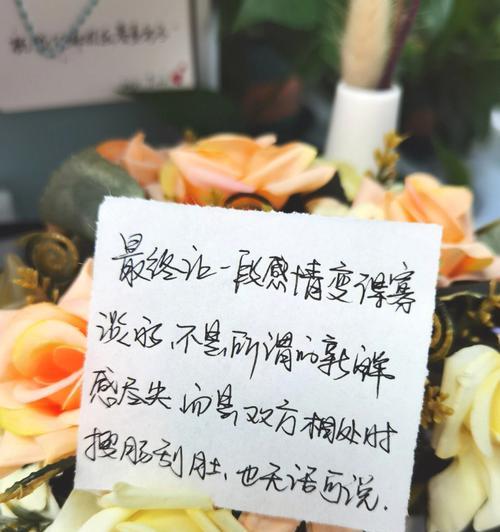 最终让一段感情变得寡
淡、不是所谓的新鲜
感尽失而是双方相处时
搜肠刮肚、也无话可说.